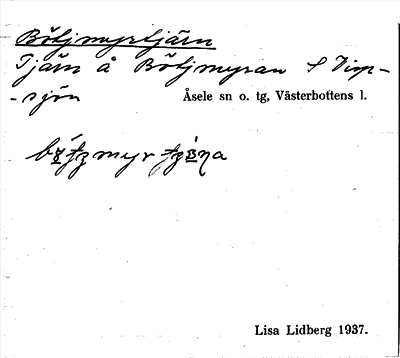 Bötjmyrtjärn
Tjärn å Bötjmyran S Vimp-
-sjön
Åsele sn o. tg, Västerbottens l.
Lisa Lidberg 1937.